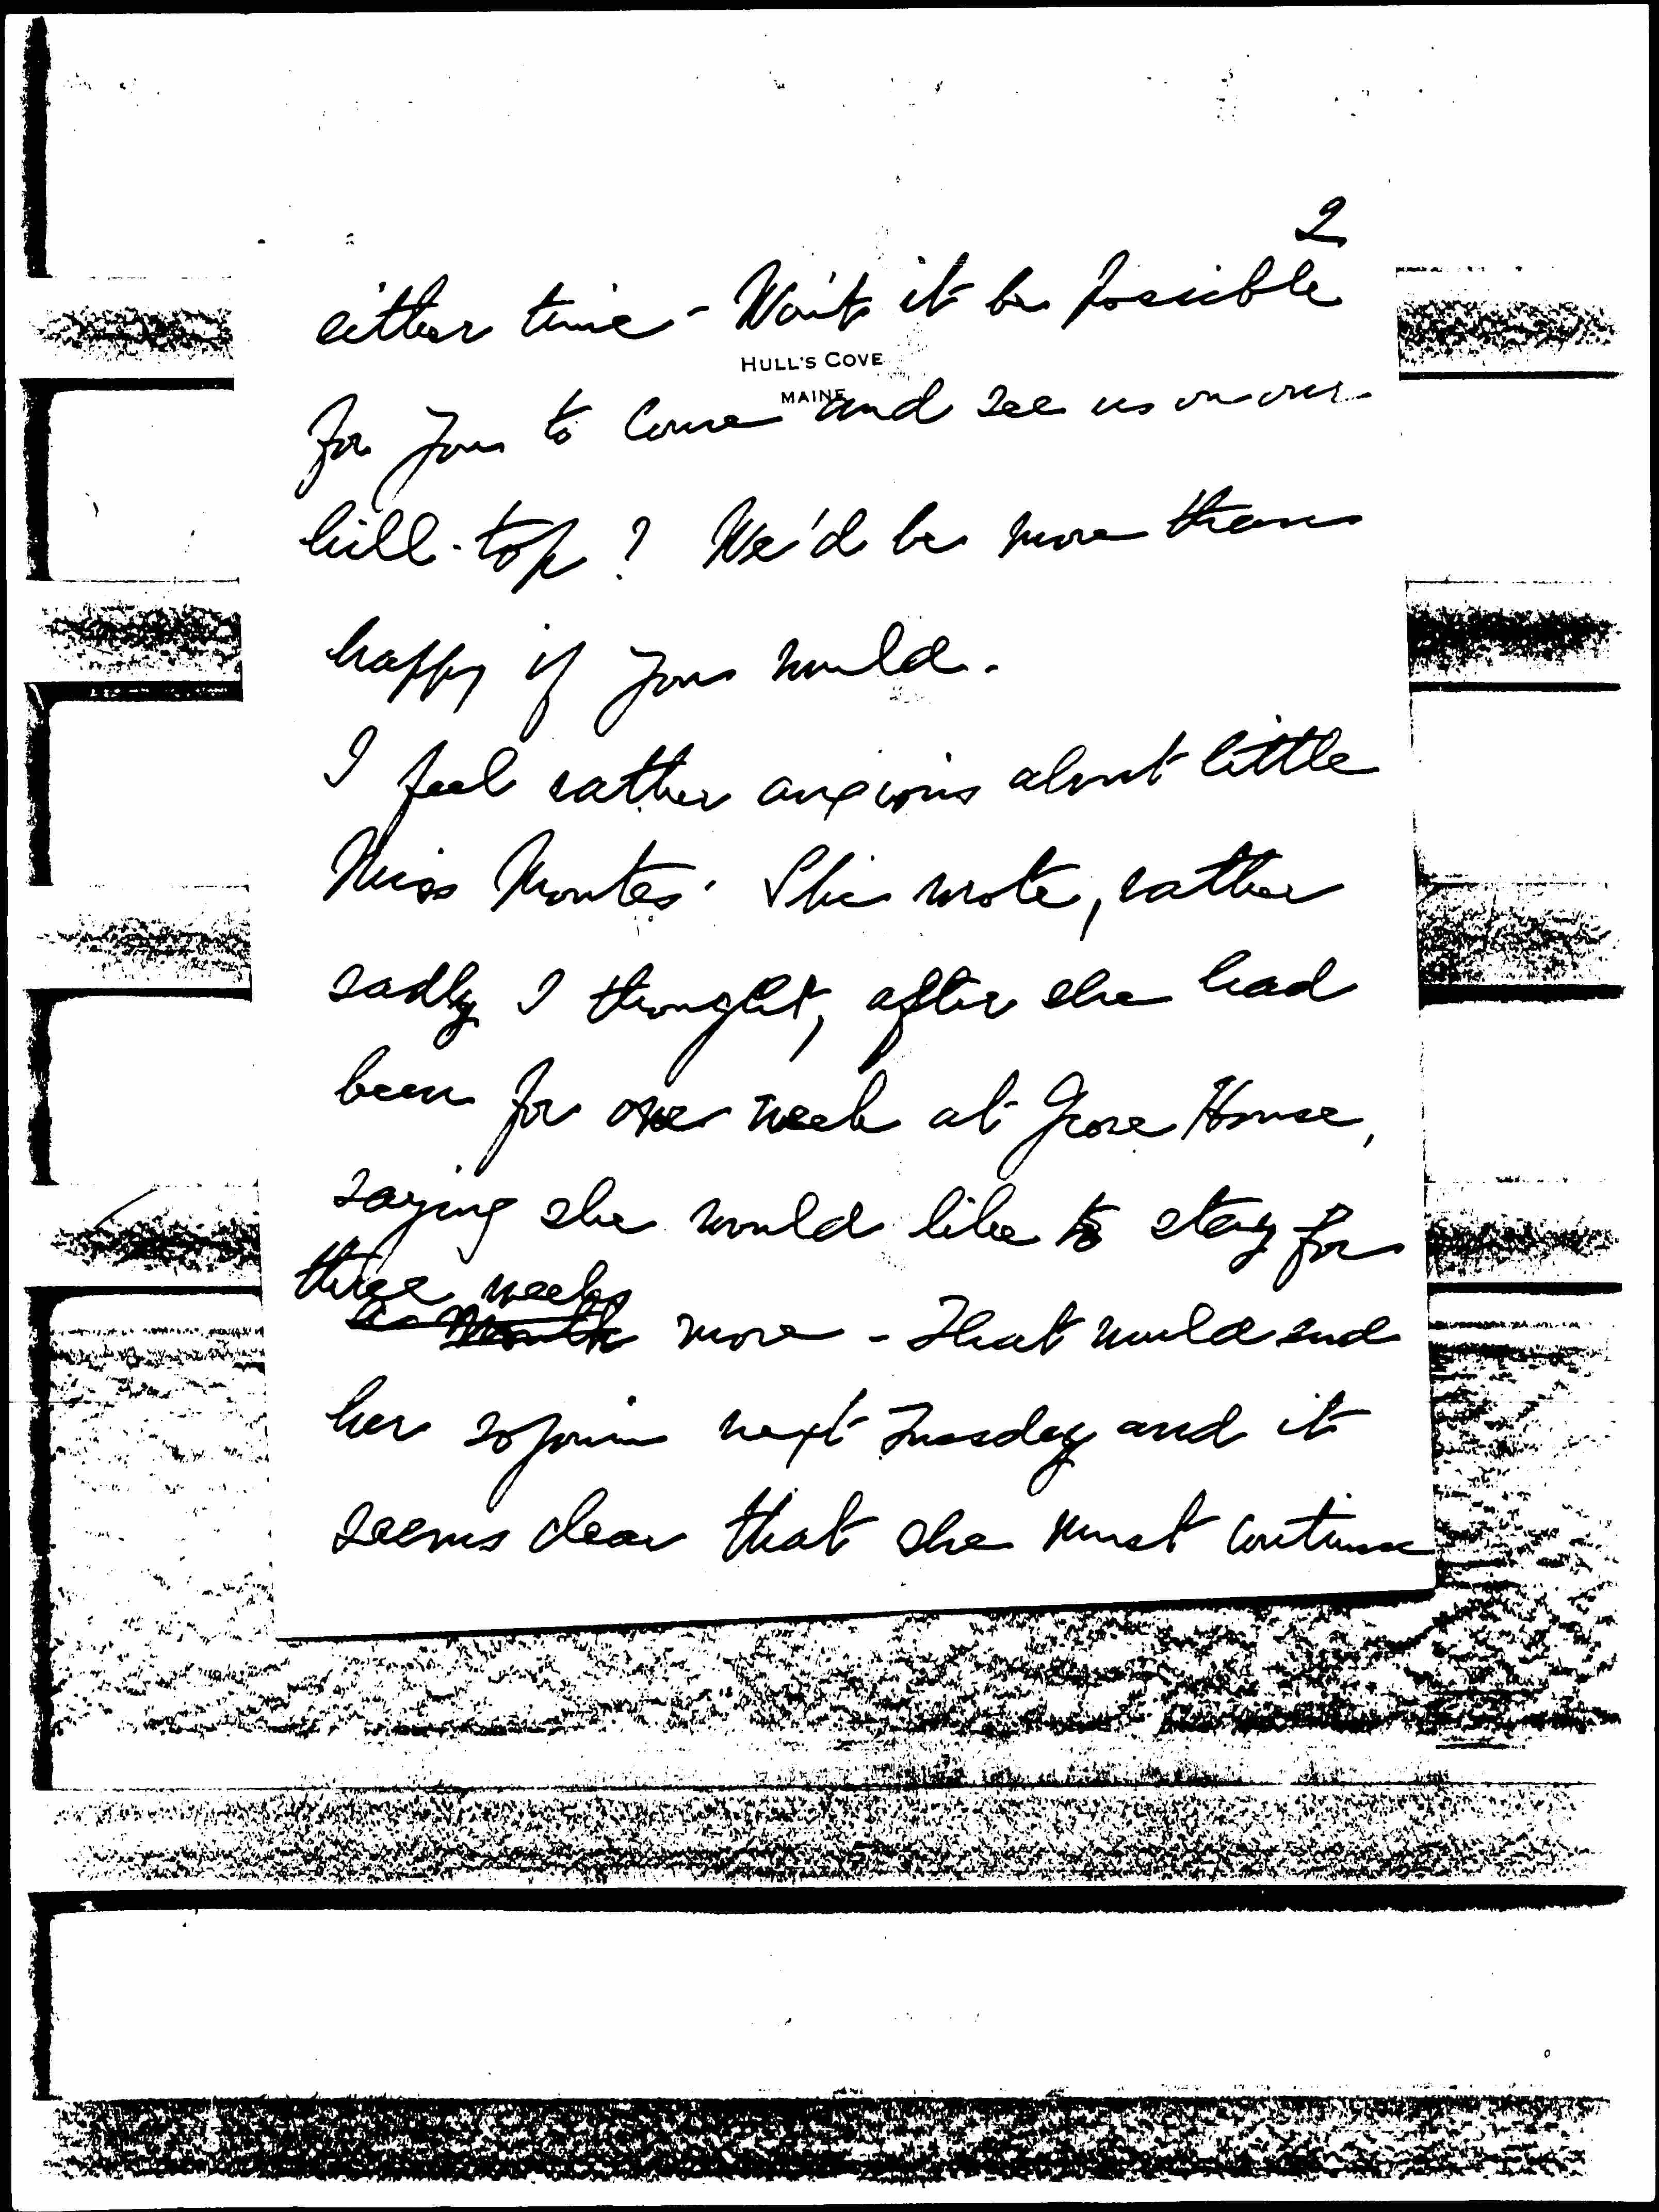 2
either time - Won't it be possible
HULL'S COVE
MAINE
for you to come and see us on our
hill-top? We'd be more than
happy if you would.
I feel rather anxious about little
Miss Montes. She wrote, rather
sadly I thought, after she had
been for one week at Grove House,
saying she would like to stay for
three weeks
a month more - That would end
her sojourn next Tuesday and it
seems clear that she must continue